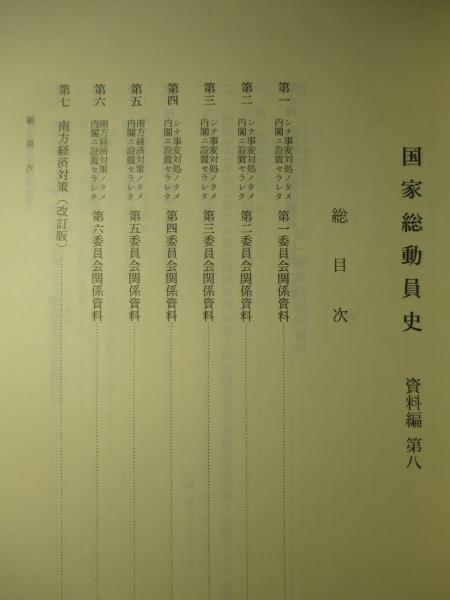 国家総動員史 資料編 第八
総目次
第一 シナ事変対処ノタメ内閣ニ設置セラレタ 第一委員会関係資料
第二 シナ事変対処ノタメ内閣ニ設置セラレタ 第二委員会関係資料
第三 シナ事変対処ノタメ内閣ニ設置セラレタ 第三委員会関係資料
第四 シナ事変対処ノタメ内閣ニ設置セラレタ 第四委員会関係資料
第五 南方経済対策ノタメ内閣ニ設置セラレタ 第五委員会関係資料
第六 南方経済対策ノタメ内閣ニ設置セラレタ 第六委員会関係資料
第七 南方経済対策（改訂版）
総目次